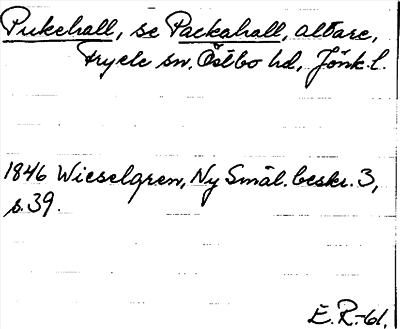 Pukehall, se Packahall, altare,
Tryele sn, Östbo hd, Jönk. l.
1846 Wieselgren, Ny Smål. beskr. 3,
s. 39.
E. R.-61.